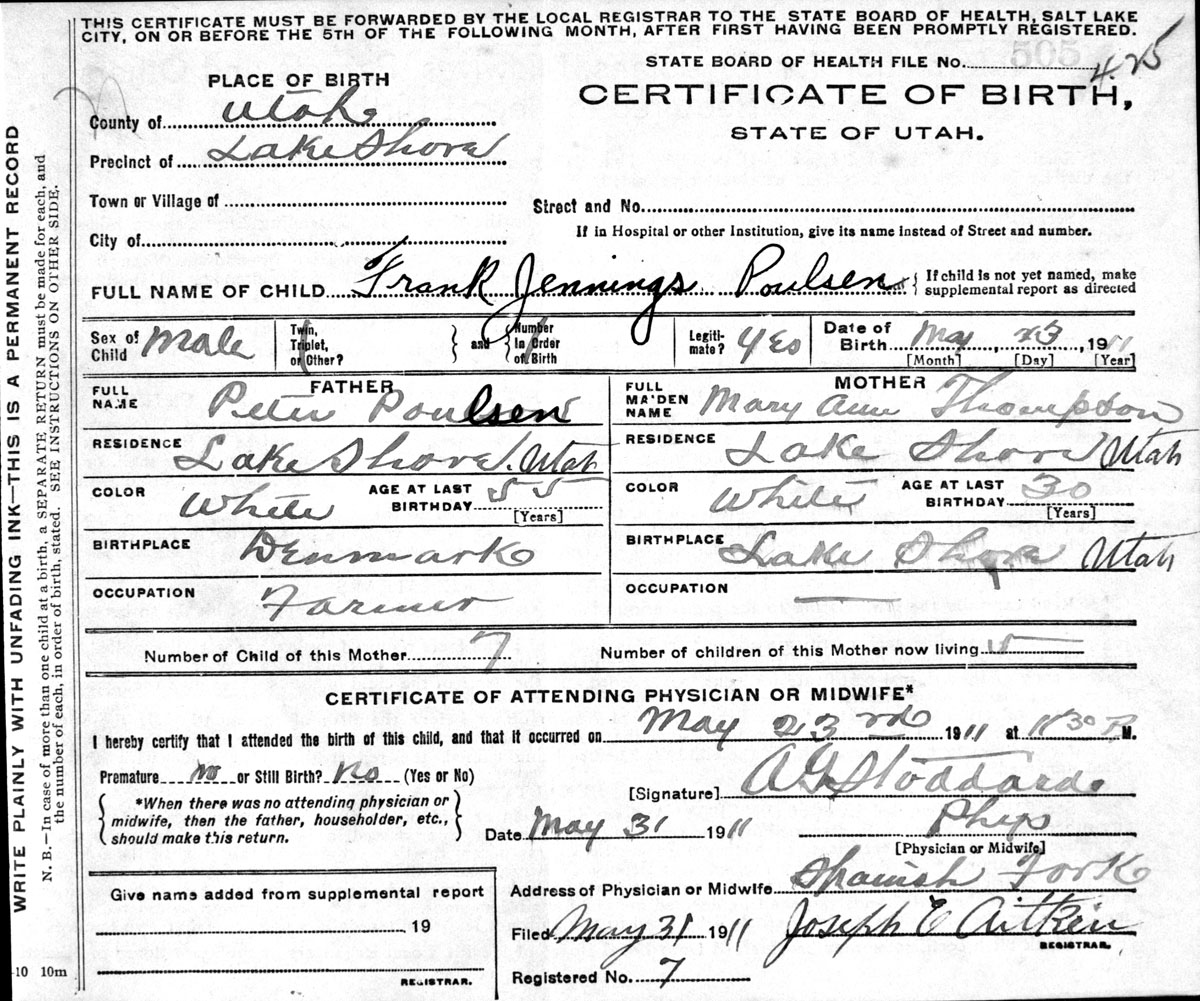 THIS CERTIFICATE MUST BE FORWARDED BY THE LOCAL REGISTRAR TO THE STATE BOARD OF HEALTH, SALT LAKE
CITY, ON OR BEFORE THE 5TH OF THE FOLLOWING MONTH, AFTER FIRST HAVING BEEN PROMPTLY REGISTERED.
505
STATE BOARD OF HEALTH FILE No. 425
PLACE OF BIRTH
CERTIFICATE OF BIRTH,
STATE OF UTAH.
County of Utah
Precinct of Lake Shore
Town or Village of
Street and No.
City of
If in Hospital or other Institution, give its name instead of Street and number.
FULL NAME OF CHILD Frank Jennings Poulsen { If child is not yet named, make
supplemental report as directed
Sex of Child Male
Twin, Triplet, or Other? } and { Number In Order of Birth
Legiti-mate? Yes
Date of Birth May, 23, 1911
[Month] [Day] [Year]
FATHER
FULL NAME Peter Poulsen
MOTHER
FULL MAIDEN NAME Mary Ann Thompson
RESIDENCE Lake Shore, Utah
RESIDENCE Lake Shore Utah
COLOR White AGE AT LAST BIRTHDAY 55
[Years]
COLOR White AGE AT LAST BIRTHDAY 30
[Years]
BIRTHPLACE Denmark
BIRTHPLACE Lake Shore Utah
OCCUPATION Farmer
OCCUPATION —
Number of Child of this Mother 7
Number of children of this Mother now living 5
CERTIFICATE OF ATTENDING PHYSICIAN OR MIDWIFE*
I hereby certify that I attended the birth of this child, and that it occurred on May 23rd 1911 at 11 30 P.M.
Premature No or Still Birth? No (Yes or No)
[Signature] A G Stoddard
{ *When there was no attending physician or
midwife, then the father, householder, etc.,
should make this return. }
Date May 31 1911
Phys
[Physician or Midwife]
Give name added from supplemental report
19
REGISTRAR.
Address of Physician or Midwife Spanish Fork
Filed May 31 1911 Joseph E Aitken
REGISTRAR.
Registered No. 7
WRITE PLAINLY WITH UNFADING INK—THIS IS A PERMANENT RECORD
N. B.—In case of more than one child at a birth, a SEPARATE RETURN must be made for each, and
the number of each, in order of birth, stated. SEE INSTRUCTIONS ON OTHER SIDE.
-10 10m